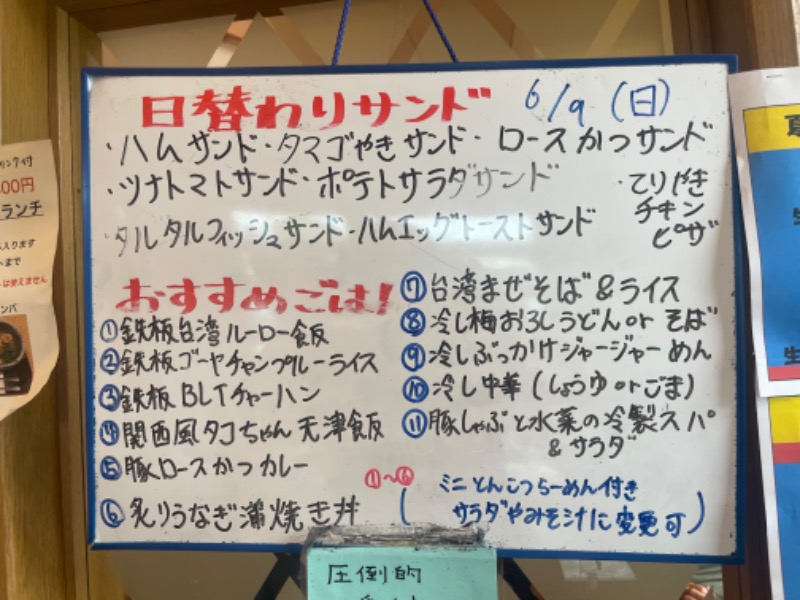 日替わりサンド 6/9 (日)
・ハムサンド・タマゴやきサンド・ロースかつサンド
・ツナトマトサンド・ポテトサラダサンド
・てりやき
チキン
ピザ
タルタルフィッシュサンド・ハムエッグトーストサンド
おすすめごはん!
①鉄板台湾ルーロー飯
②鉄板ゴーヤチャンプルーライス
③鉄板BLTチャーハン
④関西風タコちゃん天津飯
⑤豚ロースかつカレー
⑥炙りうなぎ蒲焼き丼
⑦台湾まぜそば&ライス
⑧冷し梅おろしうどんorそば
⑨冷しぶっかけジャージャーめん
⑩冷し中華(しょうゆorごま)
⑪豚しゃぶと水菜の冷製スパ
&サラダ
①〜⑥
(ミニとんこつらーめん付き
サラダやみそ汁に変更可)
圧倒的
00円
ランチ